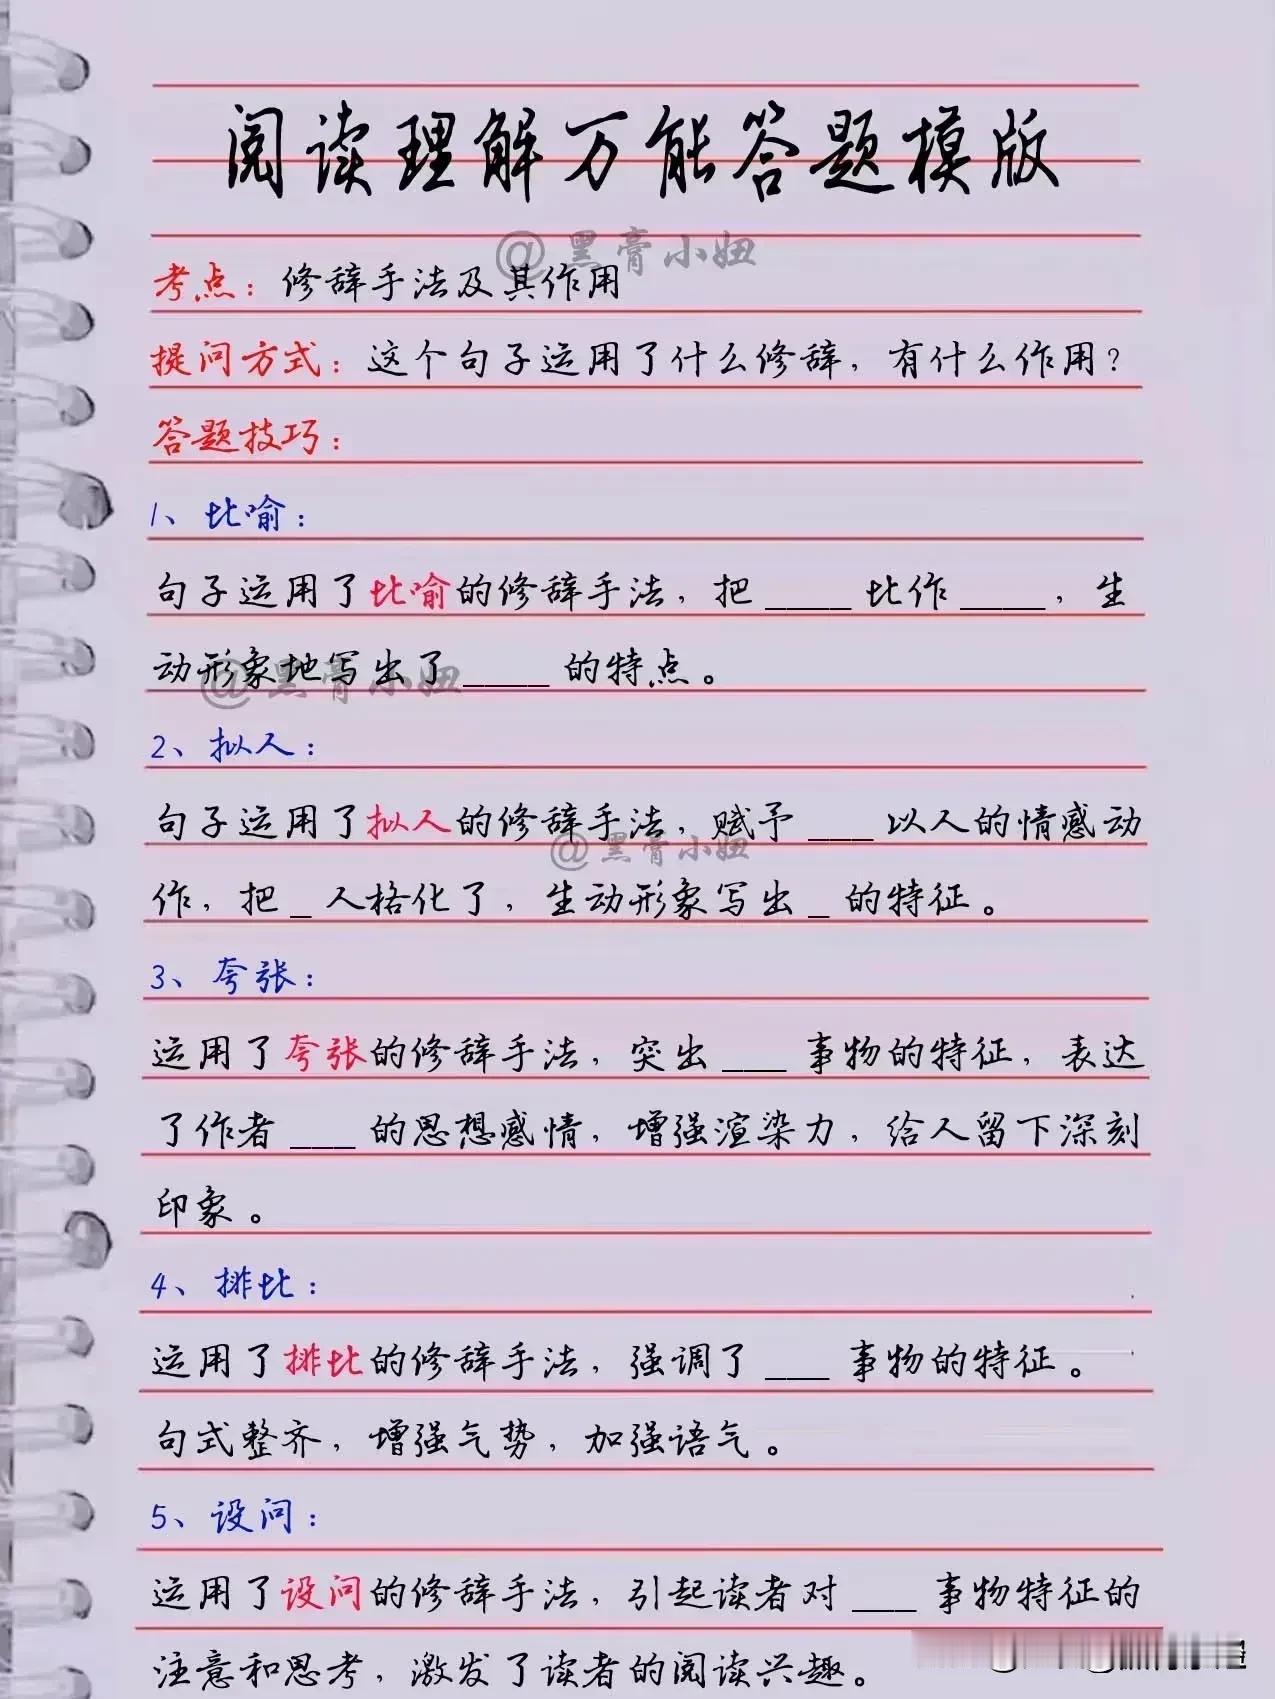 阅读理解万能答题模版
@黑膏小妞
考点：修辞手法及其作用
提问方式：这个句子运用了什么修辞，有什么作用？
答题技巧：
1、比喻：
句子运用了比喻的修辞手法，把 ____ 比作 ____，生
动形象地写出了 ____ 的特点。
@黑膏小妞
2、拟人：
句子运用了拟人的修辞手法，赋予 ___ 以人的情感动
@黑膏小妞
作，把 _ 人格化了，生动形象写出 _ 的特征。
3、夸张：
运用了夸张的修辞手法，突出 ___ 事物的特征，表达
了作者 ___ 的思想感情，增强渲染力，给人留下深刻
印象。
4、排比：
运用了排比的修辞手法，强调了 ___ 事物的特征。
句式整齐，增强气势，加强语气。
5、设问：
运用了设问的修辞手法，引起读者对 ___ 事物特征的
注意和思考，激发了读者的阅读兴趣。